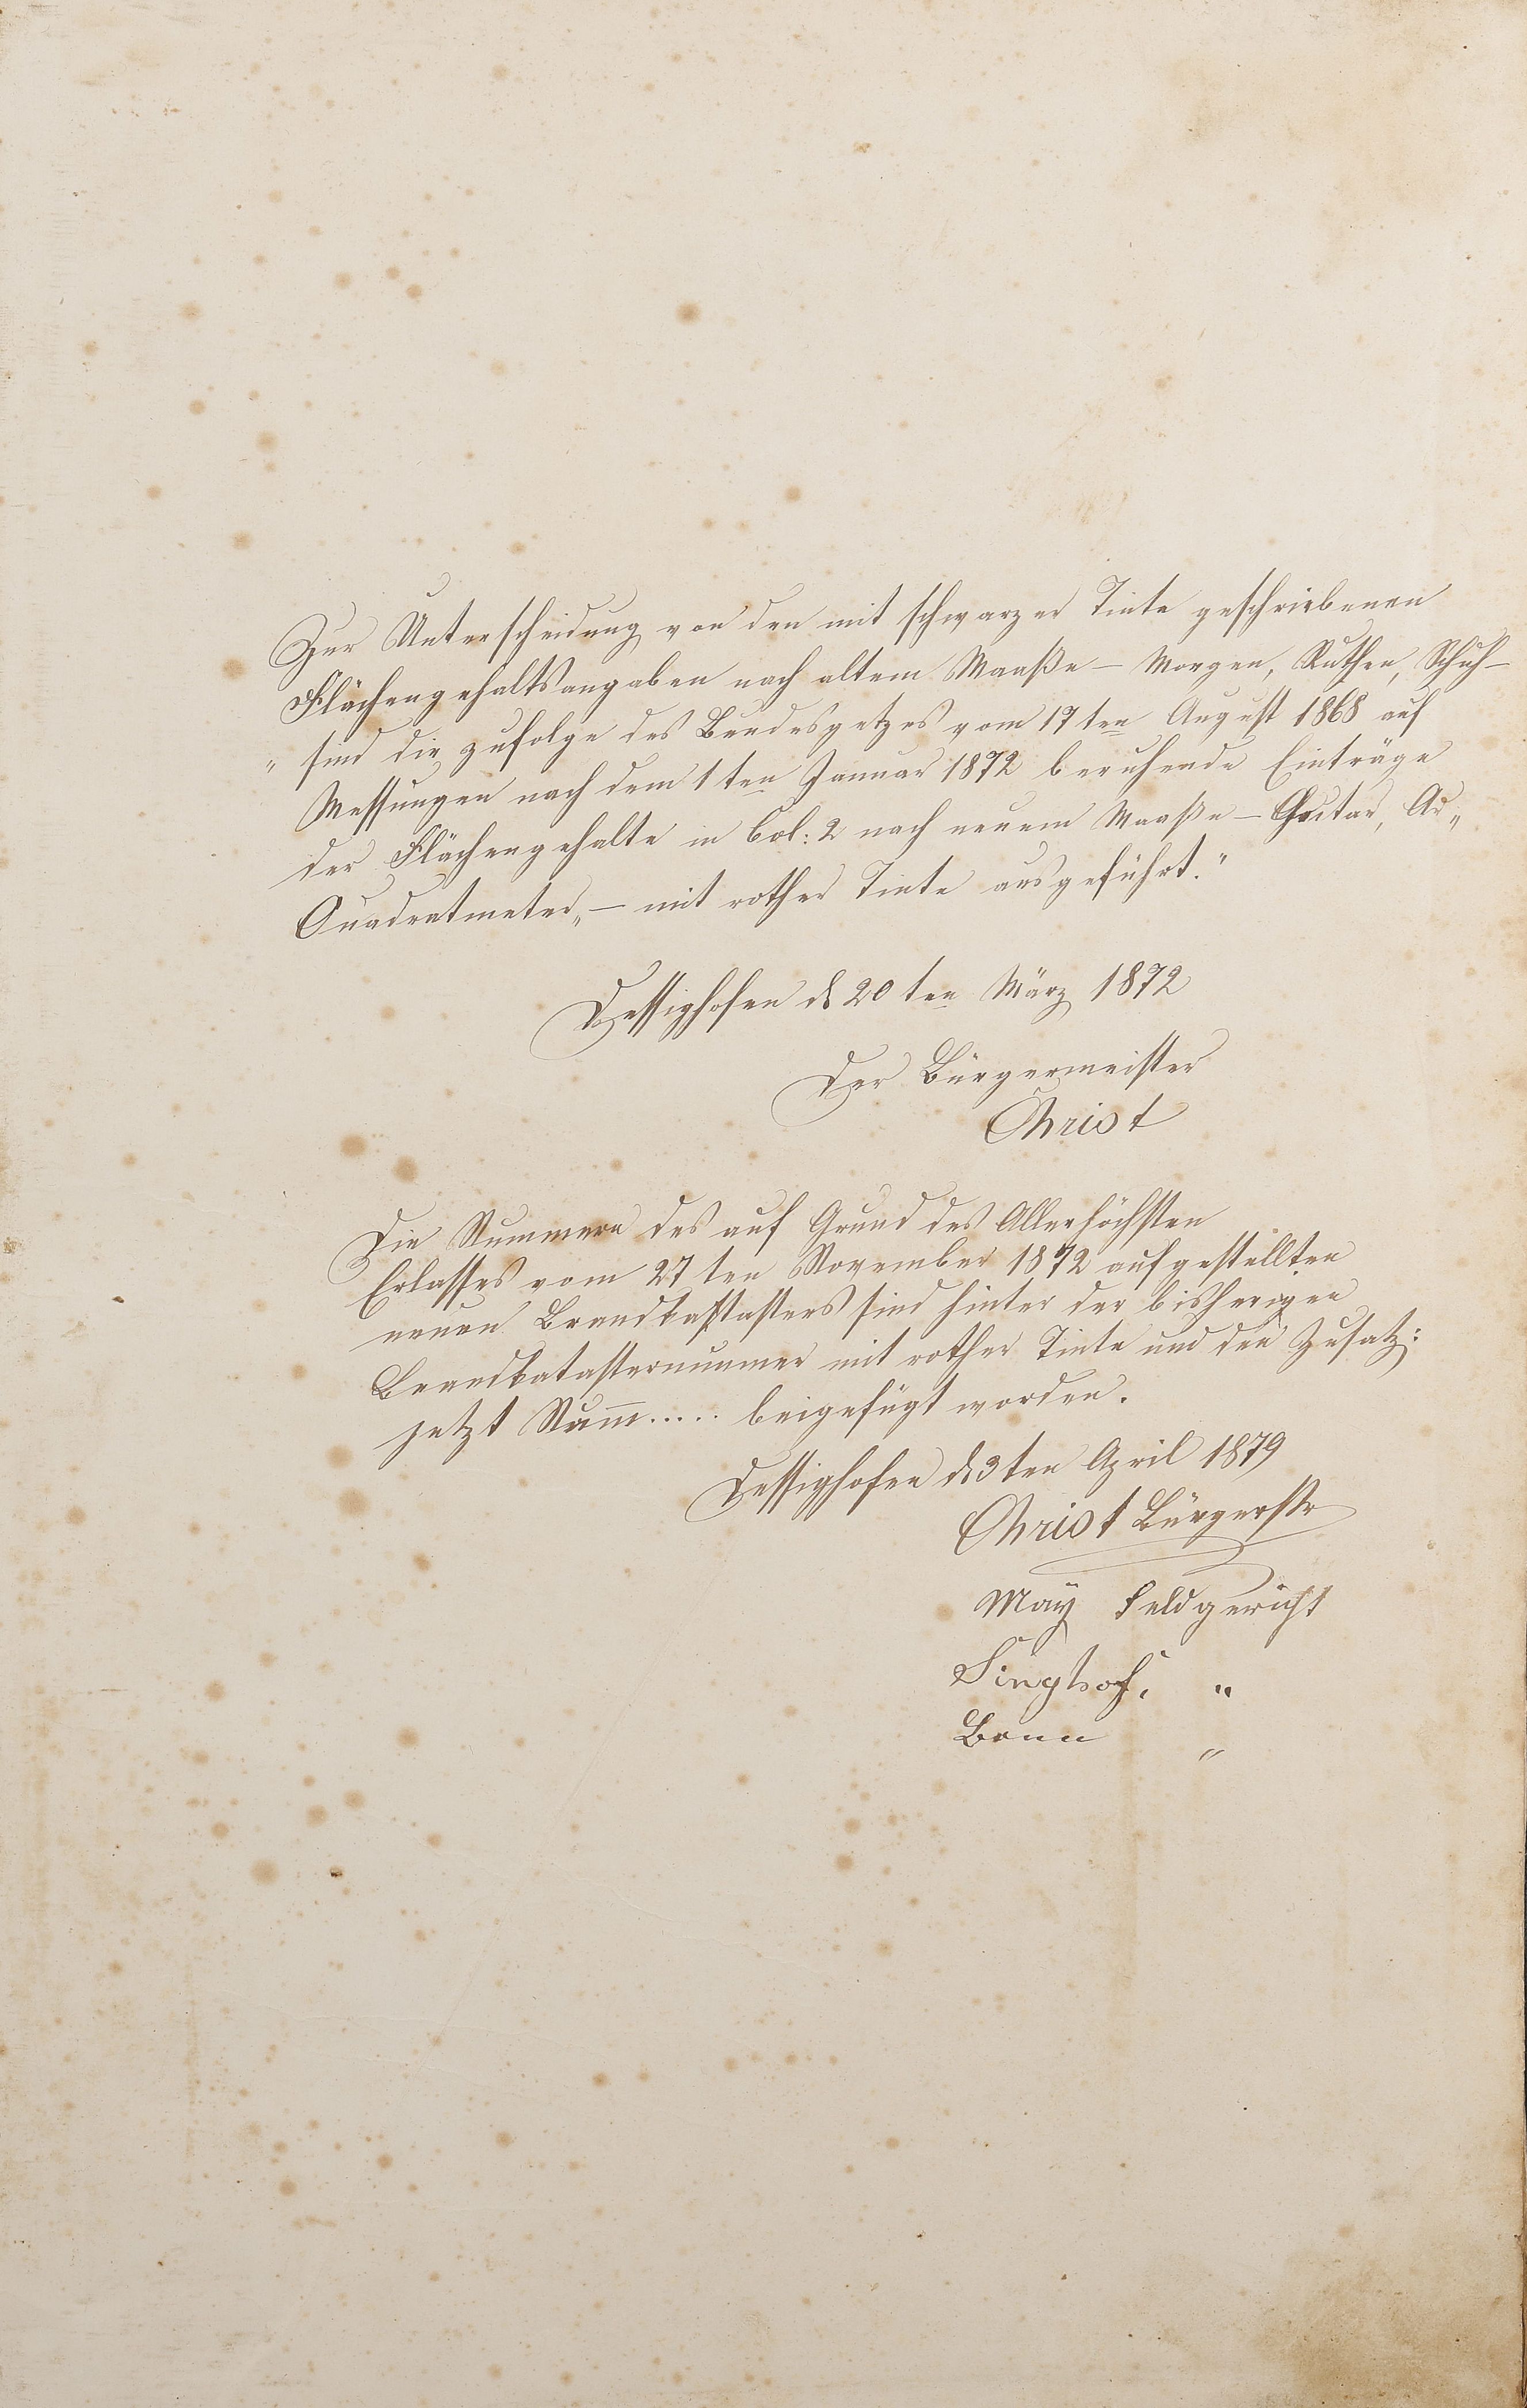 Zur Unterscheidung von den mit schwarzer Tinte geschriebenen
Flächengehaltsangaben nach altem Maaße – Morgen, Ruthen, Schuh –
„ sind die zufolge des Bundesgetzes vom 17ten August 1868 auf
Messungen nach dem 1ten Januar 1872 beruhende Einträge
der Flächengehalte in Col: 2 nach neuem Maaße – Hectar, Ar„
Quadratmeter„ – mit rother Tinte ausgeführt."
Dessighofen d 20ten März 1872
Der Bürgermeister
Christ
Die Nummern des auf Grund des Allerhöchsten
Erlasses vom 27ten November 1872 aufgestellten
neuen Brandkatasters sind hinter der bisherigen
Brandkatasternummer mit rother Tinte und den Zusatz:
jetzt Num̅..... beigefügt worden.
Dessighofen d 3ten April 1879
Christ Bürgerstr
May Feldgericht
Singhof. "
Bonn "